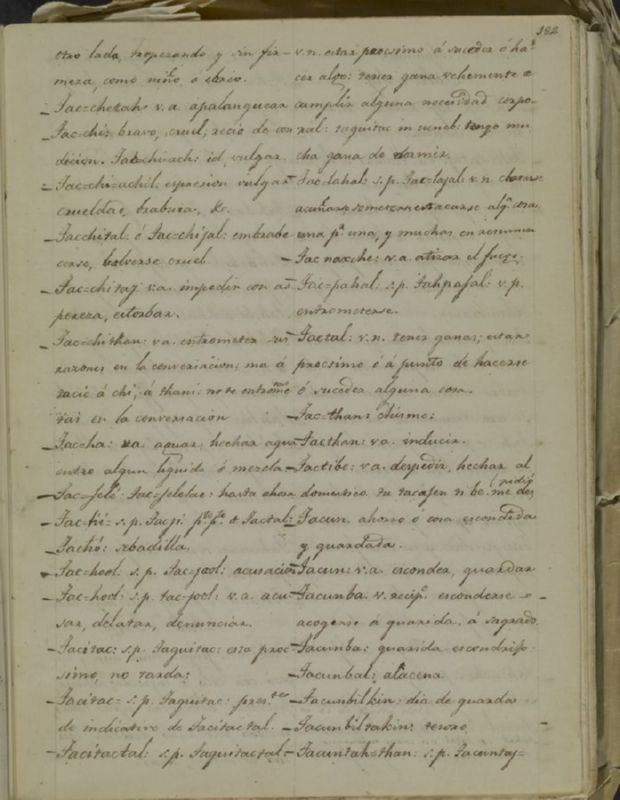 182
otro lado, tropezando y sin fir-
meza, como niño ó ebrio.
Tac-chetah v.a. apalanquear
Tac-chi: bravo, cruel, recio de con
dicion. Tac-chiach: id, vulgar
Tac-chi-achil, espresion vulgar
crueldad, brabura, &c.
Tacchihal: ó Tac-chijal: embrabe
cerse, bolverse cruel
Tac-chitaj v.a. impedir con as
pereza, estorbar.
Tac-chithan: v.a. entrometer sus
razones en la conversacion: ma á
tacic á chi, á thani: no te entrome
tas en la conversacion
Taccha: v.a. aguar, hechar agua
entre algun liquido ó mezcla
Tac-felé: Tac-felelae: hasta ahora
Tac-hi: s.p. Tacji pto. pfo. de Tactal:
Tachó: sebadilla.
Tac-hool: s.p. Tac-jool: acusacion
Tac-hool: s.p. tac-jool: v.a. acu
sar, delatar, denunciar.
Tacitac: s.p. Taquitac: esta proc
simo, no tarda:
Tacitac: s.p. Taquitac: pres.te
de indicativo de Tacitactal.
Tacitactal: s.p. Taquitactal
v.n. estar procsimo á suceder ó ha
cer algo: tener gana vehemente
cumplir alguna necesidad corpo-
ral: taquitac in uenel: tengo mu
cha gana de dormir.
Tac-lahal: s.p. Tac-lajal: v.n.
acuñarse, meterse, atacarse algª cosa
una pr. una, y muchas en
Tac naxche: v.a. atizar el fuego.
Tac-pahal: s.p. Tahpajal: v.p.
entrometerse.
Tactal: v.n. tener ganas; estar
procsimo ó á punto de hacerse
ó suceder alguna cosa.
Tac-than: chisme:
Tacthan: v.a. inducir.
Tactibe: v.a. despedir, hechar al
domestico. tu tacajen ti be: me des
pidió
Tacun ahorro ó cosa escondida
y guardada.
Tacun: v.a. esconder, guardar
Tacunba. v. recip. esconderse
acogerse á guarida, á sagrado.
Tacunba: guarida escondrijo
Tacunbal: alacena.
Tacunbilkin: dia de guardar
Tacunbiltakin: tesoro
Tacuntah-than: s.p. Tacuntaj-